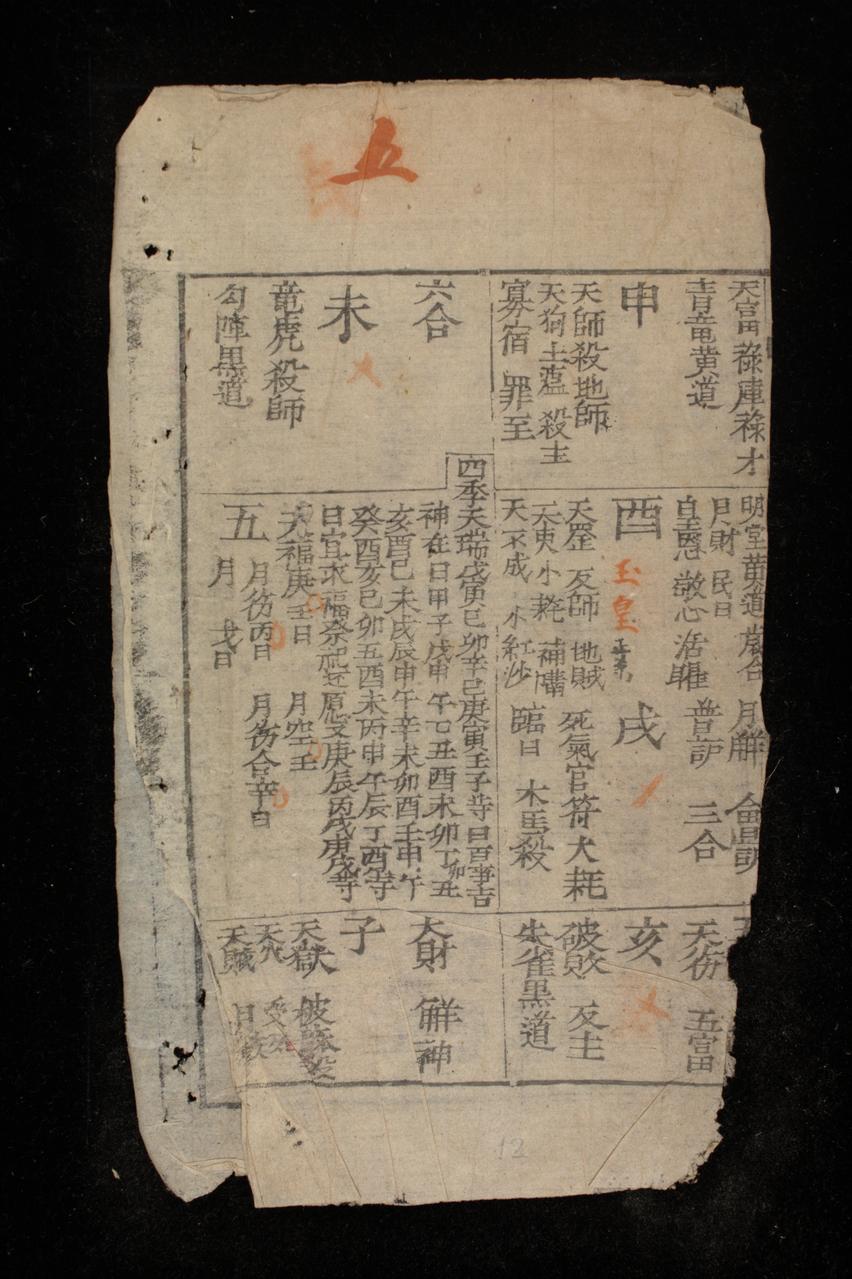 五
天富 祿庫祿才
青竜黄道
申
天師殺地師
天狗土瘟 殺主
寡宿 罪至
六合
未
竜虎殺師
勾陣黒道
明堂黄道 歲合 月觧
月財 民日
皇恩 敬心 活曜 普护 三合
酉
玉皇
戌
天罡 反師 地賊 死氣官符大耗
天吏小耗
天不成 小紅沙 臨日 木馬殺
四季天瑞戊寅己卯辛巳庚寅壬子等日百事吉
神在日甲子戊申午乙丑酉未卯丁卯丑
亥酉己未戌辰申午辛未卯酉壬申午
癸酉亥巳卯五酉未丙申午辰丁酉等
日宜求福祭祀还愿又庚辰丙戌庚戌等
天福庚壬日 月空壬
月彷丙日 月彷合辛日
五月
戈日
天彷 五富
亥
破敗 反主
朱雀黒道
大財 觧神
子
天獄 被麻殺
天火 受死
天賊 月厭
12